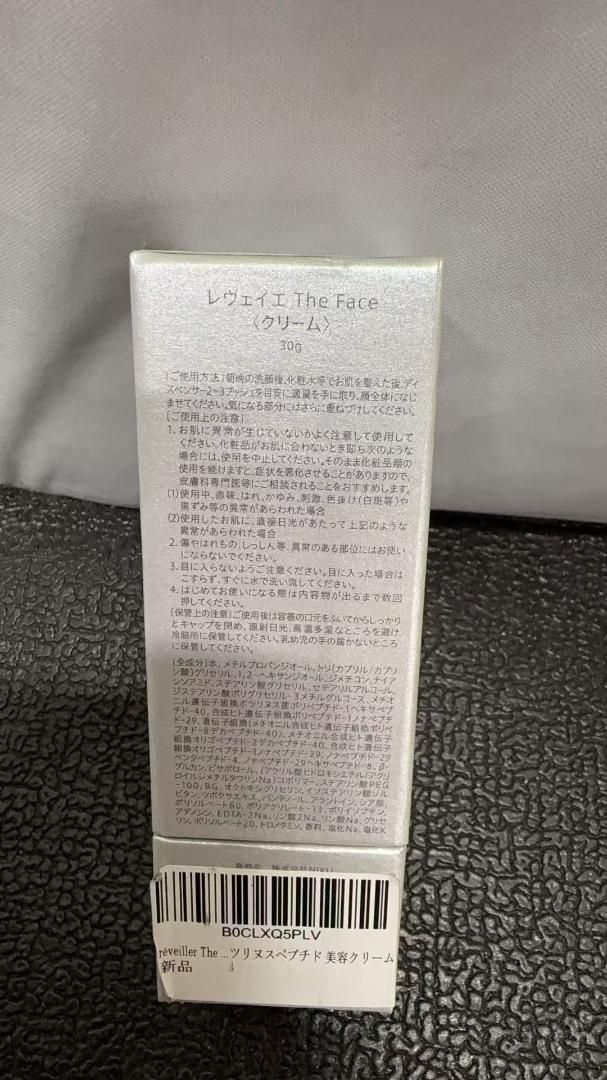 レヴェイエ The Face
〈クリーム〉
30g
〔ご使用方法〕朝晩の洗顔後、化粧水等でお肌を整えた後、ディ
スペンサー2~3プッシュを目安に適量を手に取り、顔全体になじ
ませてください。気になる部分にはさらに重ねづけしてください。
〔ご使用上の注意〕
1. お肌に異常が生じていないかよく注意して使用して
ください。化粧品がお肌に合わないとき即ち次のような
場合には、使用を中止してください。そのまま化粧品類の
使用を続けますと、症状を悪化させることがありますので、
皮膚科専門医等にご相談されることをおすすめします。
(1)使用中、赤味、はれ、かゆみ、刺激、色抜け(白斑等)や
黒ずみ等の異常があらわれた場合
(2)使用したお肌に、直接日光があたって上記のような
異常があらわれた場合
2. 傷やはれもの、しっしん等、異常のある部位にはお使い
にならないでください。
3. 目に入らないようご注意ください。目に入った場合は
こすらず、すぐに水で洗い流してください。
4. はじめてお使いになる際は内容物が出るまで数回
押してください。
〔保管上の注意〕ご使用後は容器の口元をふいてからしっかり
とキャップを閉め、直射日光、高温多湿なところを避け
冷暗所に保管してください。乳幼児の手の届かないところ
に保管してください。
〔全成分〕水、メチルプロパンジオール、トリ(カプリル/カプリ
ン酸)グリセリル、1,2-ヘキサンジオール、ジメチコン、ナイア
シンアミド、ステアリン酸グリセリル、セテアリルアルコール、
ジステアリン酸ポリグリセリル-3メチルグルコース、メチオ
ニル遺伝子組換ボツリヌス菌ポリペプチド-1ヘキサペプ
チド-40、合成ヒト遺伝子組換ポリペプチド-1ノナペプチ
ド-29、遺伝子組換(メチオニル合成ヒト遺伝子組換ポリペ
プチド-8デカペプチド-40)、メチオニル合成ヒト遺伝子
組換オリゴペプチド-2デカペプチド-40、合成ヒト遺伝子
組換オリゴペプチド-1ノナペプチド-29、ノナペプチド-29
ペンタペプチド-4、ノナペプチド-29ヘキサペプチド-8、β-
グルカン、ビサボロール、(アクリル酸ヒドロキシエチル/アクリ
ロイルジメチルタウリンNa)コポリマー、ステアリン酸PEG
-100、BG、オクトキシグリセリン、イソステアリン酸ソル
ビタン、ツボクサエキス、パンテノール、アラントイン、シア脂、
ポリソルベート60、ポリアクリレート-13、ポリイソブテン、
アデノシン、EDTA-2Na、リン酸2Na、リン酸Na、グリセ
リン、ポリソルベート20、トロメタミン、香料、塩化Na、塩化K
B0CLXQ5PLV
réveiller The ...ツリヌスペプチド 美容クリーム
新品